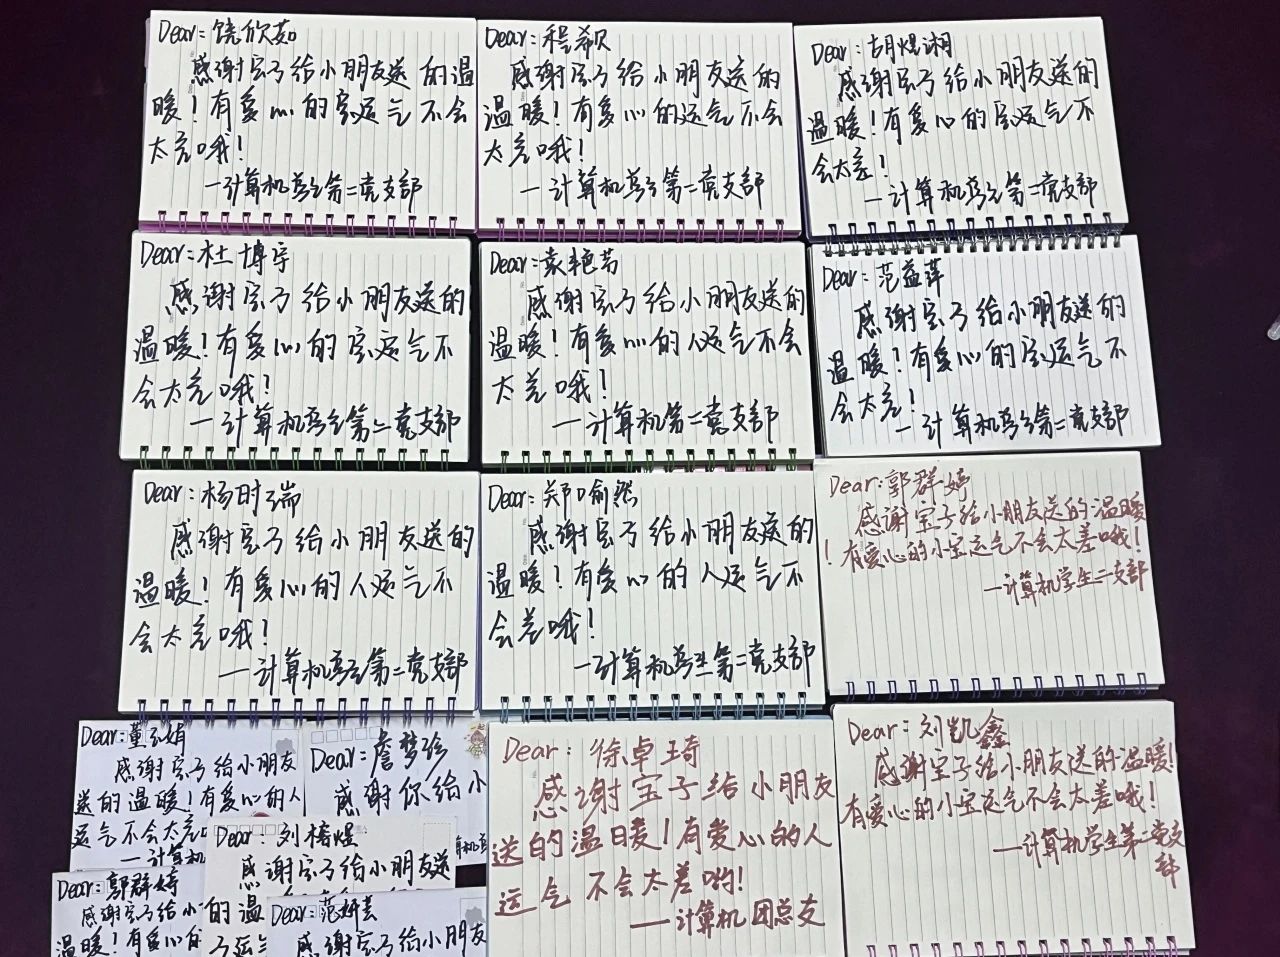 Dear:饶欣茹
感谢宝子给小朋友送的温
暖!有爱心的宝运气不会
太差哦!
—计算机学生第二党支部
Dear:程希贝
感谢宝子给小朋友送的
温暖!有爱心的运气不会
太差哦!
—计算机学生第二党支部
Dear:胡煜湘
感谢宝子给小朋友送的
温暖!有爱心的宝运气不
会太差!
—计算机学生第二党支部
Dear:杜博宇
感谢宝子给小朋友送的
温暖!有爱心的宝运气不
会太差哦!
—计算机学生第二党支部
Dear:袁艳芳
感谢宝子给小朋友送的
温暖!有爱心的人运气不会
太差哦!
—计算机第二党支部
Dear:范益萍
感谢宝子给小朋友送的
温暖!有爱心的宝运气不
会太差!
—计算机学生第二党支部
Dear:杨时端
感谢宝子给小朋友送的
温暖!有爱心的人运气不
会太差哦!
—计算机学生第二党支部
Dear:郑喻
感谢宝子给小朋友送的
温暖!有爱心的人运气不
会差哦!
—计算机学生第二党支部
Dear:郭群婷
感谢宝子给小朋友送的温暖
!有爱心的小宝运气不会太差哦!
—计算机学生二支部
Dear:董子娟
感谢宝子给小朋友
送的温暖!有爱心的人
运气不会太差
—计算机
Dear:詹梦珍
感谢你给小
Dear:刘榕煌
感谢宝子给小朋友送
的温
Dear:郭群婷
感谢宝子给小
温暖!有爱心的
Dear:范妍芸
感谢宝子给小朋友
Dear:徐卓琦
感谢宝子给小朋友
送的温暖!有爱心的人
运气不会太差哟!
—计算机团总支
Dear:刘凯鑫
感谢宝子给小朋友送的温暖!
有爱心的小宝运气不会太差哦!
—计算机学生第二党支
部